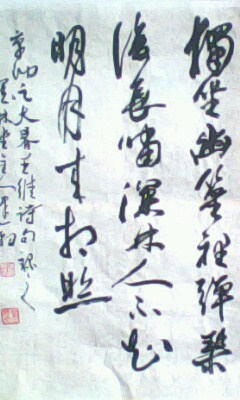 獨坐幽篁裡彈琴
復長嘯深林人不知
明月來相照
之大暑王維詩句